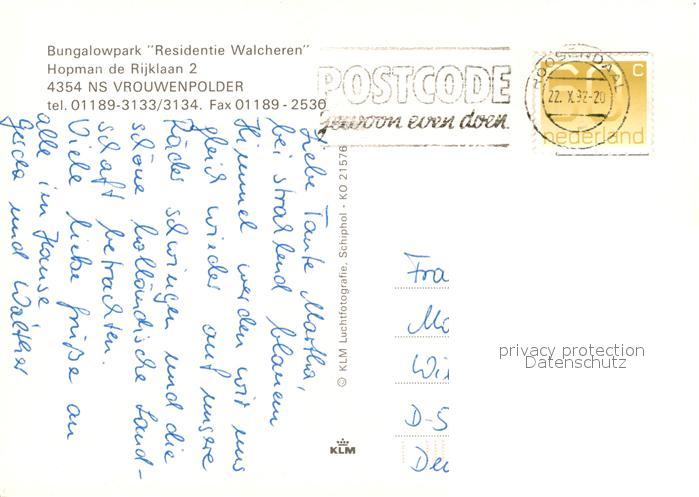 Bungalowpark "Residentie Walcheren"
Hopman de Rijklaan 2
4354 NS VROUWENPOLDER
tel. 01189-3133/3134. Fax 01189-2530
POSTCODE
gewoon even doen.
ROOSENDAAL
22. X. 92-20
60 c
nederland
Liebe Tante Martha,
bei strahlend blauem
Himmel werden wir uns
gleich wieder auf unsere
Räder schwingen und die
schöne holländische Land-
schaft betrachten.
Viele liebe Grüße an
alle im Hause
Gerda und Walther
© KLM Luchtfotografie, Schiphol - KO 21576
KLM
Fra
Ma
Wi
D-5
Deu
privacy protection
Datenschutz